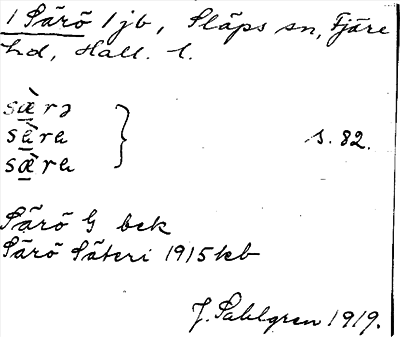 1 Särö 1 jb, Släps sn, Fjäre
hd, Hall. l.
sæ̀rə
sæ̀ra
sæ̀ra
s. 82.
Särö G bek
Särö Säteri 1915 kb
J. Sahlgren 1919.